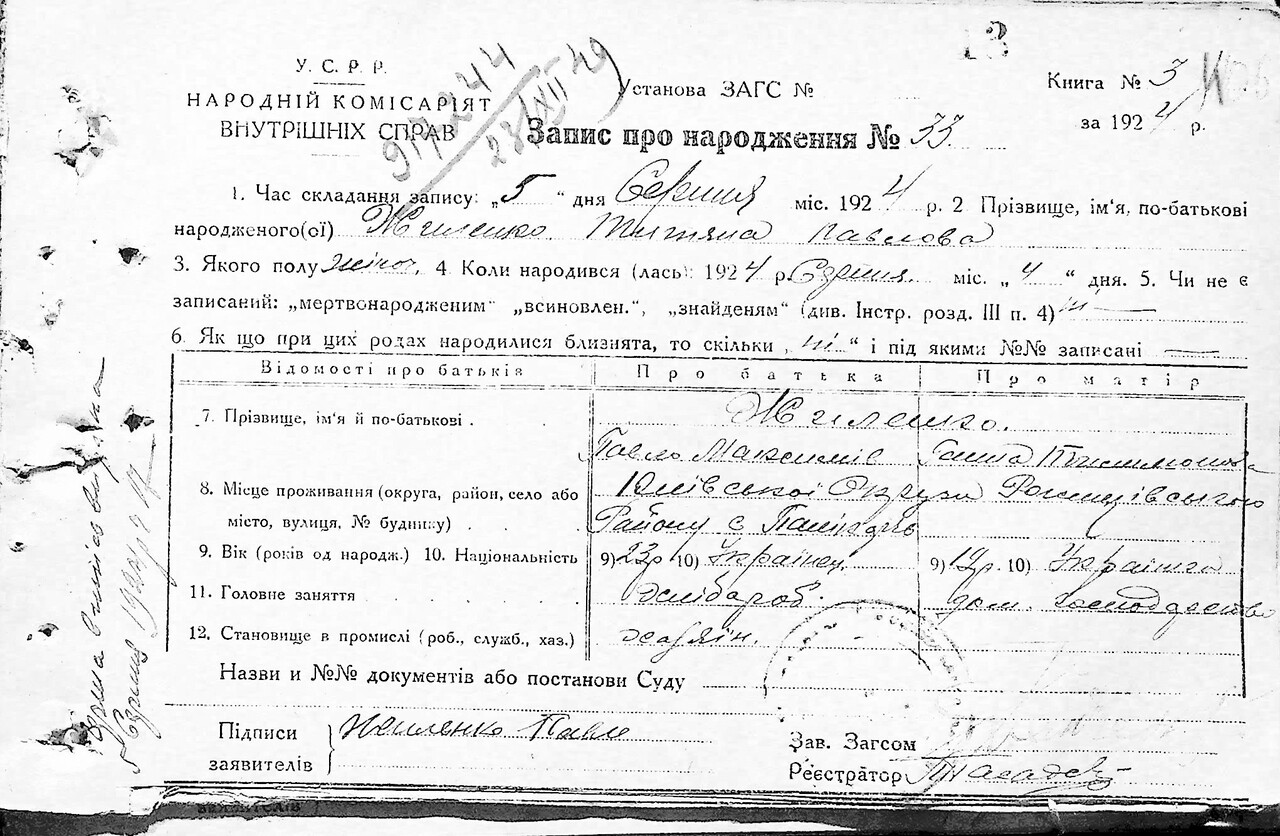 13
У. С. Р. Р.
НАРОДНІЙ КОМІСАРІЯТ
ВНУТРІШНІХ СПРАВ
Установа ЗАГС №
Книга № 3
за 1924 р.
23/XII 49
Запис про народження № 33.
1. Час складання запису: „5“ дня Серпня міс. 1924 р. 2 Прізвище, ім‘я, по-батькові
народженого(ої) Жиленко Титяна Павлова
3. Якого полу жіноч. 4. Коли народився (лась): 1924 р. Серпня міс. „4“ дня. 5. Чи не є
записаний: „мертвонародженим“ „всиновлен.“, „знайденям“ (див. Інстр. розд. III п. 4) ні
6. Як що при цих родах народилися близнята, то скільки „ні“ і під якими №№ записані
Відомості про батьків Про батька Про матір
7. Прізвище, ім‘я й по-батькові Жиленко.
Павло Максимів Ганна
8. Місце проживання (округа, район, село або Київської Округи
місто, вулиця, № будинку) Району с
9. Вік (років од народж.) 10. Національність 9) 23р. 10) Українец. 9) 19р. 10) Українка
11. Головне заняття Хлібороб. дом. господарство
12. Становище в промислі (роб., служб., хаз.) хазяїн.
Назви и №№ документів або постанови Суду
Підписи
заявителів
Жиленко Павло
Зав. Загсом
Реєстратор
5 Серпня 1924 р.
заявителів